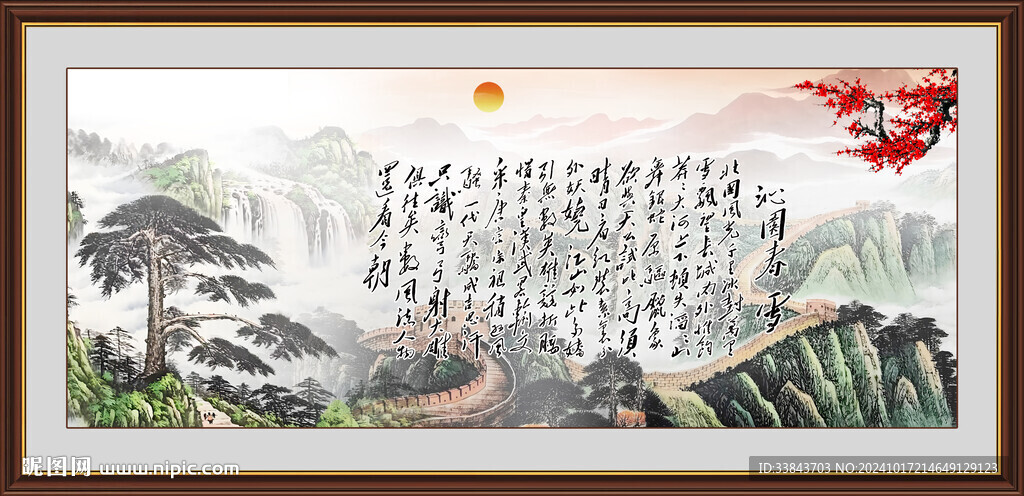 沁園春 雪
北国风光千里冰封万里
雪飘望长城内外惟餘
莽々大河上下顿失滔々山
舞银蛇原驱蠟象
欲与天公試比高须
晴日看红装素裹分
外妖嬈 江山如此多嬌
引無數英雄競折腰
惜秦皇漢武略輸文
采唐宗宋祖稍逊风
骚一代天驕成吉思汗
只識彎弓射大雕
俱往矣數風流人物
還看今朝
昵图网 www.nipic.com
ID:33843703 NO:20241017214649129123